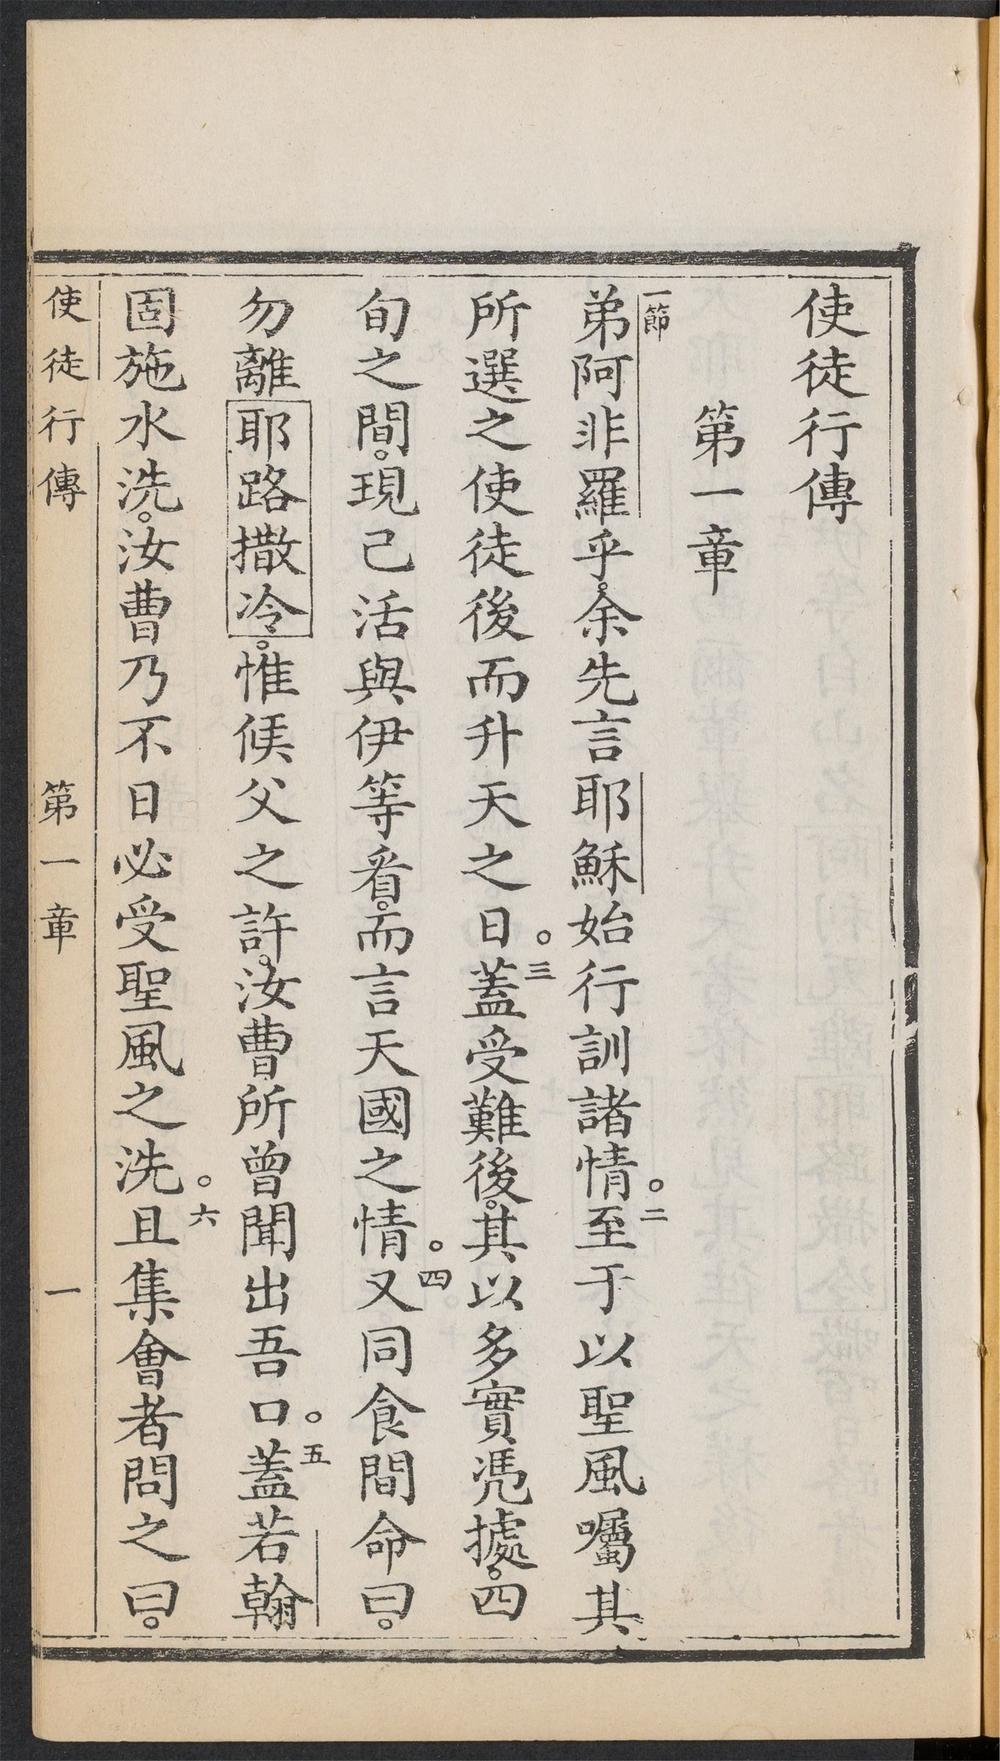 使徒行傳
第一章
一節
弟阿非羅乎。余先言耶穌始行訓諸情。二至于以聖風囑其
所選之使徒後而升天之日。三蓋受難後。其以多實憑據。四
旬之間。現己活與伊等看。而言天國之情。四又同食間命曰。
勿離耶路撒冷。惟候父之許。汝曹所曾聞出吾口。五蓋若翰
固施水洗。汝曹乃不日必受聖風之洗。六且集會者問之曰。
使徒行傳 第一章 一